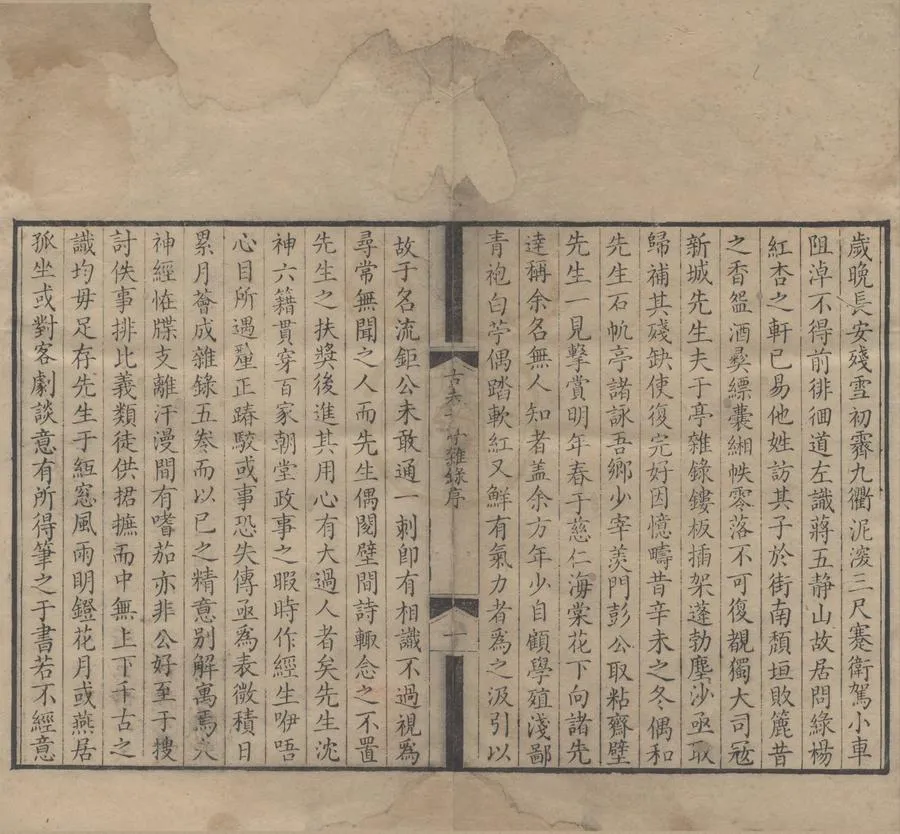 歲晚長安殘雪初霽九衢泥深三尺蹇衛駕小車
阻淖不得前徘徊道左識蔣五靜山故居問綠楊
紅杏之軒已易他姓訪其子於街南頹垣敗簏昔
之香盌酒彝縹囊緗帙零落不可復覩獨大司寇
新城先生夫于亭雜錄鏤板插架蓬勃塵沙亟取
歸補其殘缺使復完好因憶疇昔辛未之冬偶和
先生石帆亭諸詠吾鄉少宰羨門彭公取粘齋壁
先生一見擊賞明年春于慈仁海棠花下向諸先
達稱余名無人知者盖余方年少自顧學殖淺鄙
青袍白苧偶踏軟紅又鮮有氣力者為之汲引以
古夫于亭雜錄序
一
故于名流鉅公未敢通一刺卽有相識不過視為
尋常無聞之人而先生偶閱壁間詩輒念之不置
先生之扶奬後進其用心有大過人者矣先生沈
神六籍貫穿百家朝堂政事之暇時作經生咿唔
心目所遇釐正踳駁或事恐失傳亟為表微積日
累月薈成雜錄五卷而以已之精意別解寓焉夫
神經恠牒支離汗漫間有嗜茄亦非公好至于搜
討佚事排比義類徒供捃摭而中無上下千古之
識均毋足存先生于絙窓風雨明鐙花月或燕居
孤坐或對客劇談意有所得筆之于書若不經意